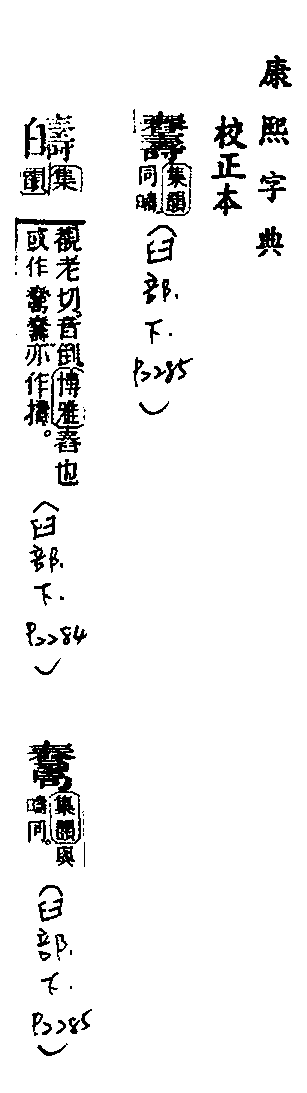 康熙字典
校正本
集韻
同
(臼部.下.P2285)
集韻
覩老切音倒博雅舂也
或作 亦作擣。
(臼部.下.P2284)
集韻與
同。
(臼部.下.P2285)